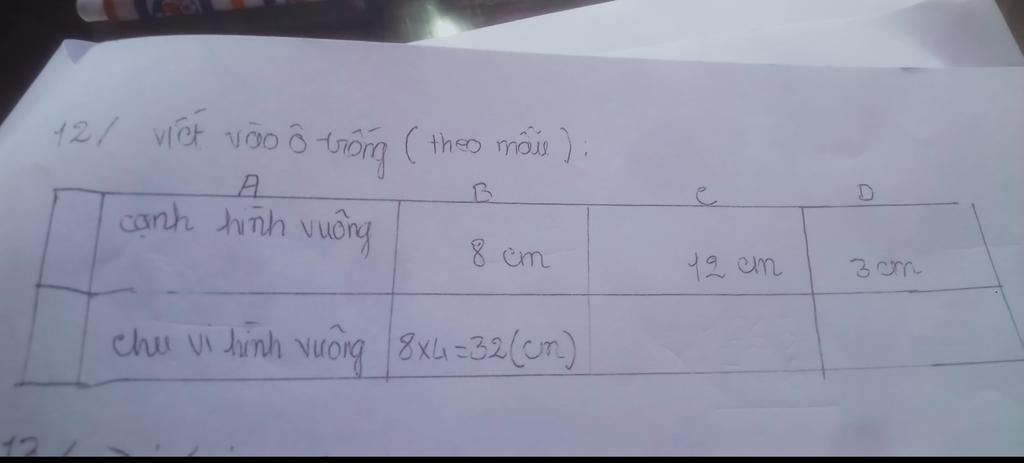 12/ viết vào ô trống (theo mẫu):
A B C D
cạnh hình vuông 8 cm 12 cm 3 cm
chu vi hình vuông 8x4=32(cm)